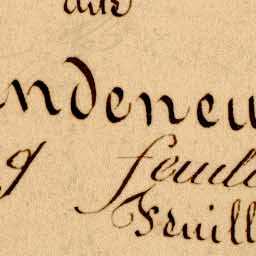 ndeneu
g feuil
Feuill